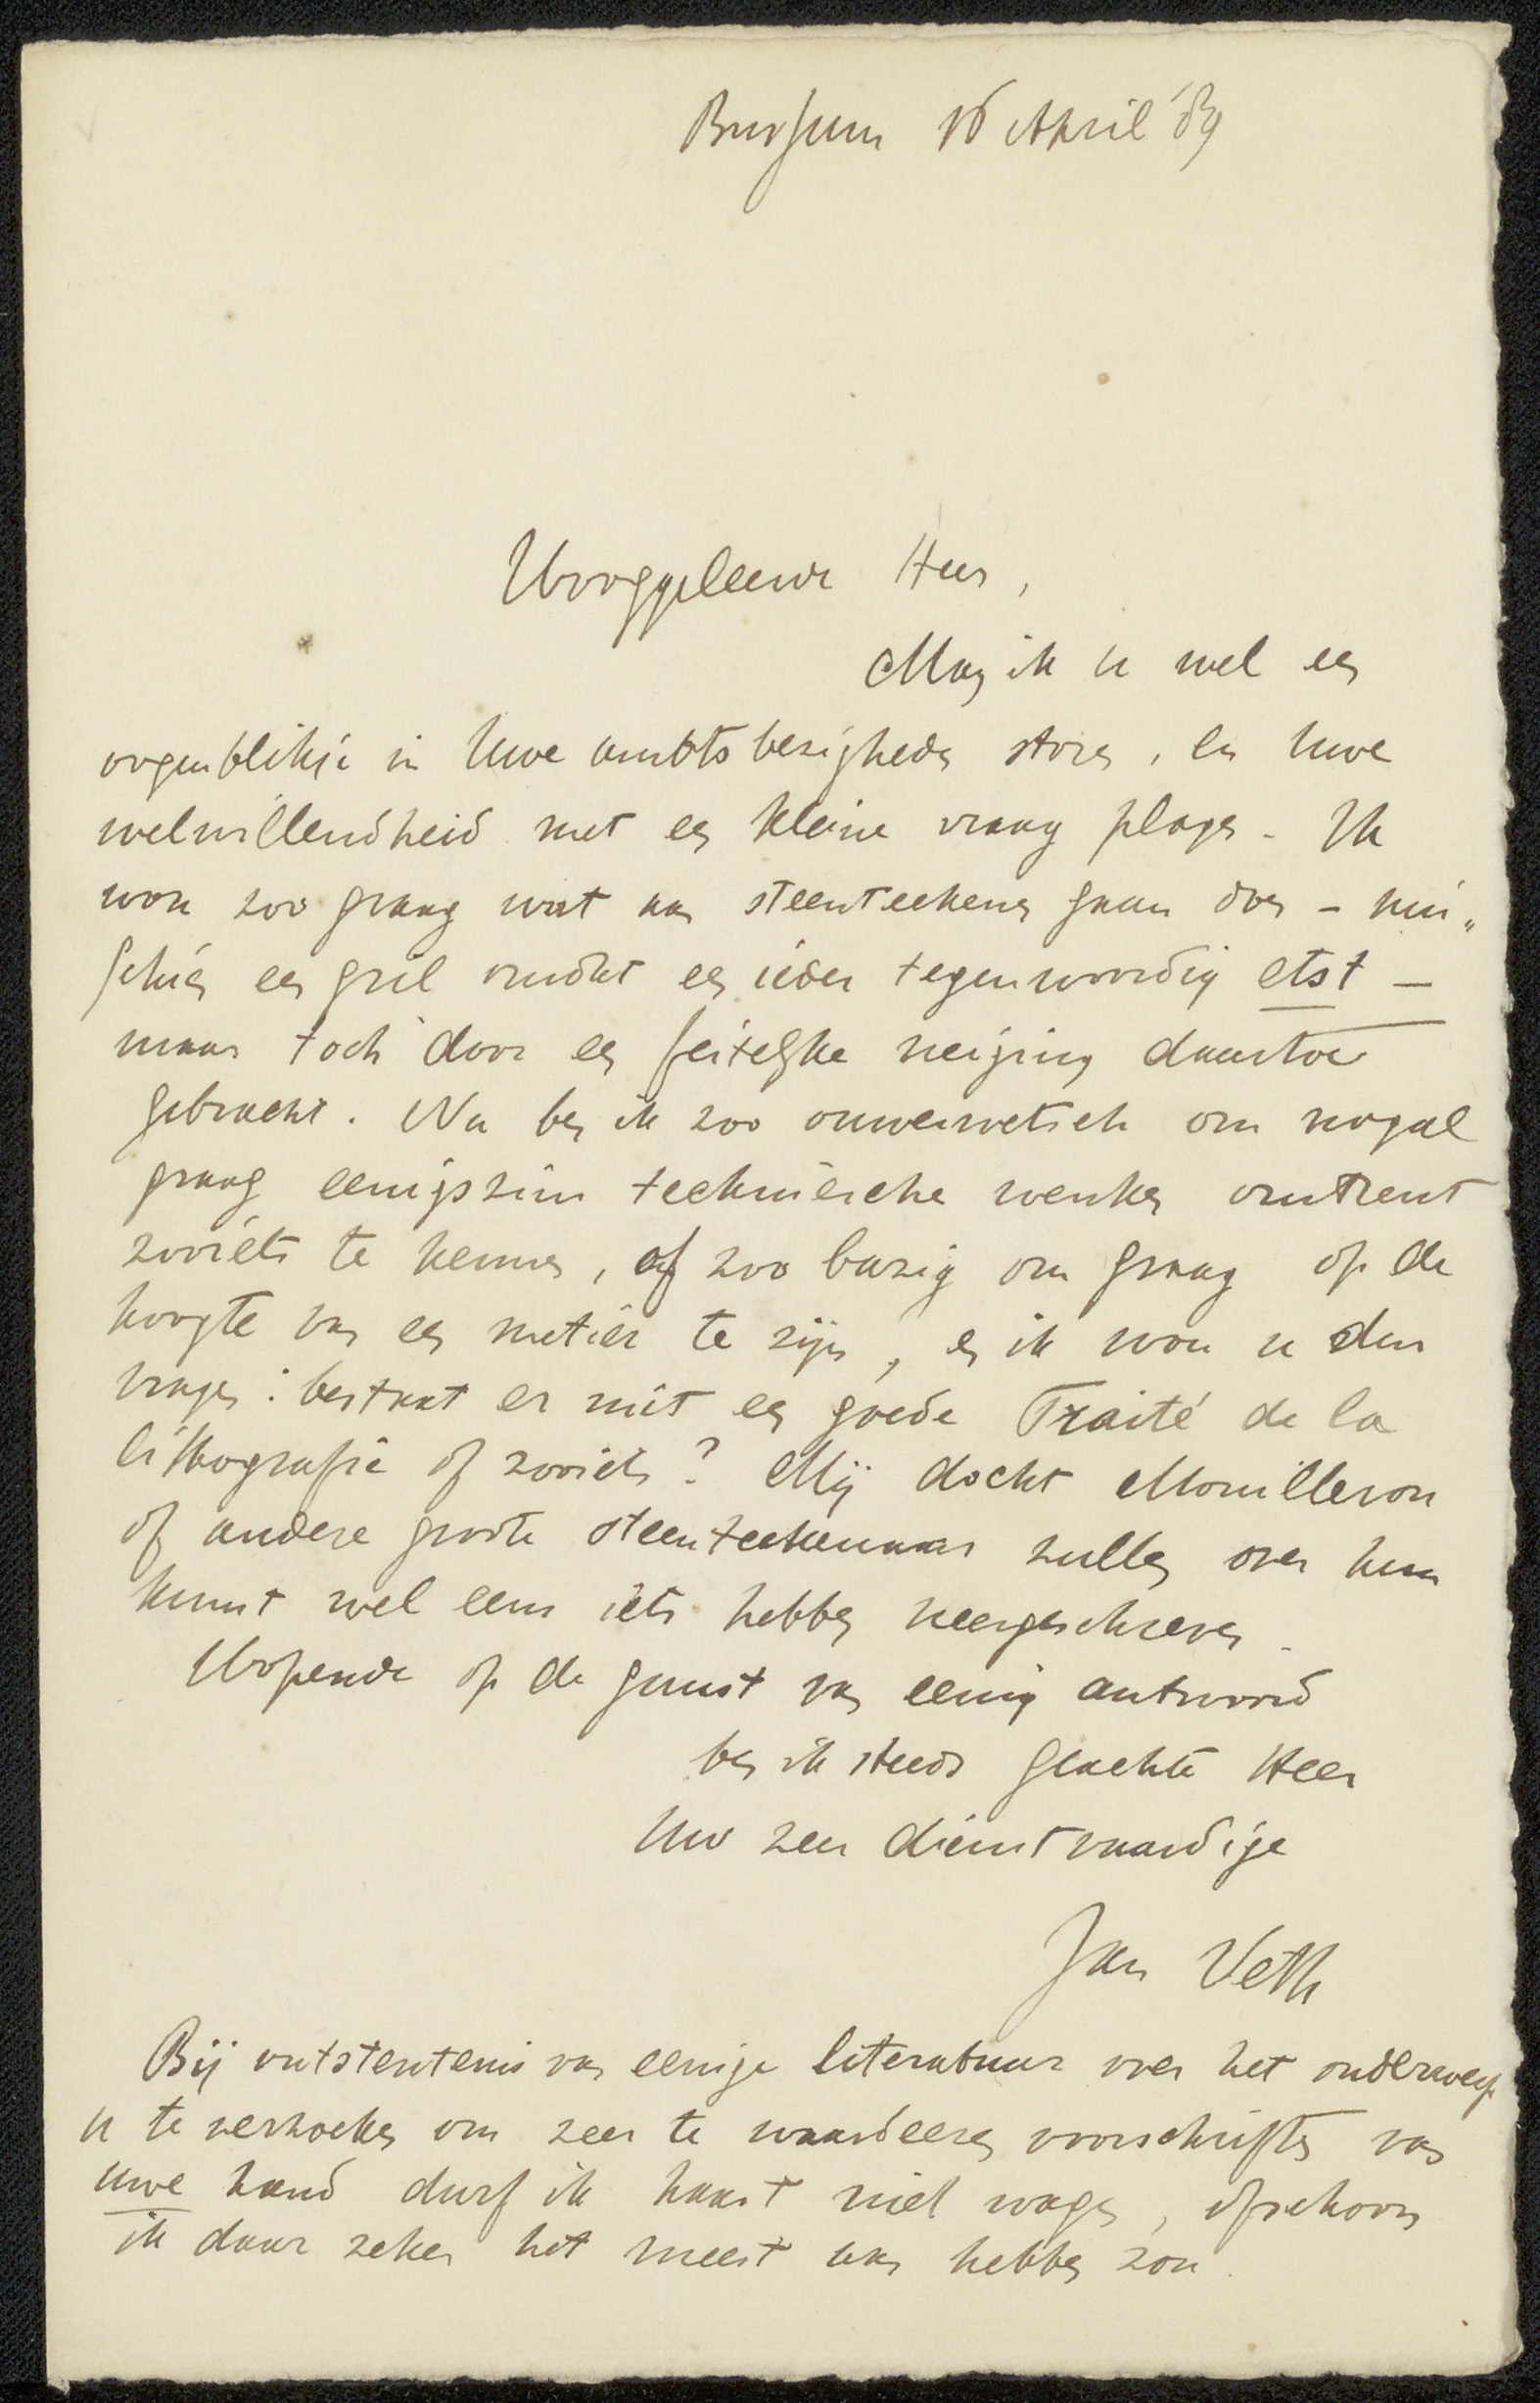 Bussum 16 April '89
Hooggeleerde Heer,
Mag ik U wel een
oogenblikje in Uwe ambtsbezigheden storen, en Uwe
welwillendheid met een kleine vraag plagen. Ik
wou zoo graag wat aan steenteekenen gaan doen – mis„
schien een gril omdat een ieder tegenwoordig etst –
maar toch door een feitelijke neiging daartoe
gebracht. Nu ben ik zoo ouwerwetsch om nogal
graag eenigszins technische wenken omtrent
zooiets te kennen, of zoo bazig om graag op de
hoogte van een metier te zijn, en ik wou u dus
vragen: bestaat er niet een goede Traité de la
lithografie of zooiets? Mij docht Mouilleron
of andere groote steenteekenaars zullen over hun
kunst wel eens iets hebben neergeschreven.
Hopende op de gunst van eenig antwoord
ben ik steeds geachte Heer
Uw zeer dienstvaardige
Jan Veth
Bij ontstentenis van eenige literatuur over het onderwerp
u te verzoeken om zeer te waardeeren voorschriften van
uwe hand durf ik haast niet wagen, ofschoon
ik daar zeker het meest aan hebben zou.